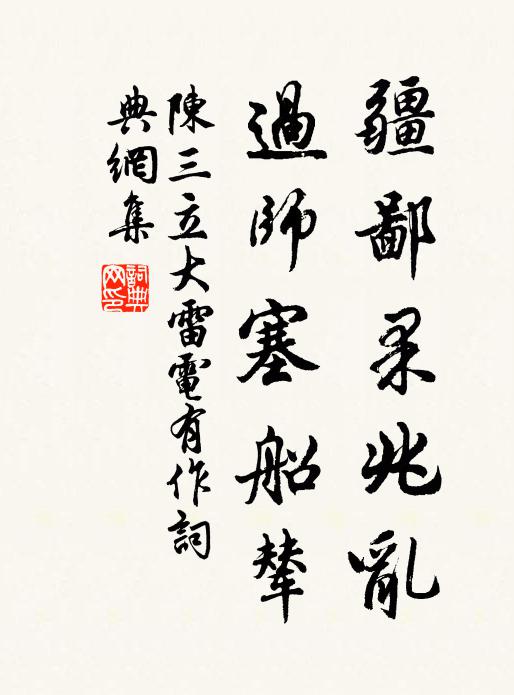 疆鄙累兆亂
過師塞船輦
陳三立大雷電有作詞
典網集
詞典
网印